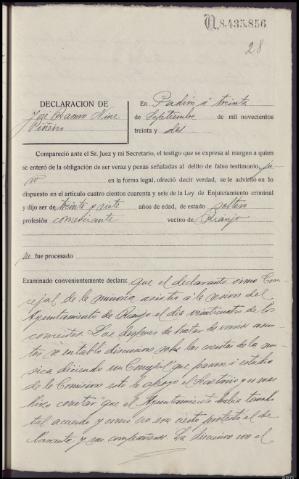 N.8.435.856
28
DECLARACION DE
Jose Blanco Nine
Piñeiro
En Padrón á treinta
de Septiembre de mil novecientos
treinta y dos
Compareció ante el Sr. Juez y mi Secretario, el testigo que se expresa al margen a quien
se enteró de la obligación de ser veraz y penas señaladas al delito de falso testimonio, ju-
ró en la forma legal, ofreció decir verdad, se le advirtió en lo
dispuesto en el artículo cuatro cientos cuarenta y seis de la Ley de Enjuiciamiento criminal
y dijo ser de treinta y siete años de edad, de estado soltero
profesión comerciante vecino de Rianjo
no fue procesado
Examinado convenientemente declara: Que el declarante como Con-
cejal de la minoria, asistió á la sesion del
Ayuntamiento de Rianjo el dia veinticuatro de los
corrientes. Que despues de tratar de varios asun-
tos, se entabló discusion sobre las cuentas de la mú-
sica diciendo un Concejal que pasaran á estudio
de la Comision
constar que el Ayuntamiento habia tomado
tal acuerdo y como no era cierto protestó el de-
clarante, y sus compañeros. La discusion con el